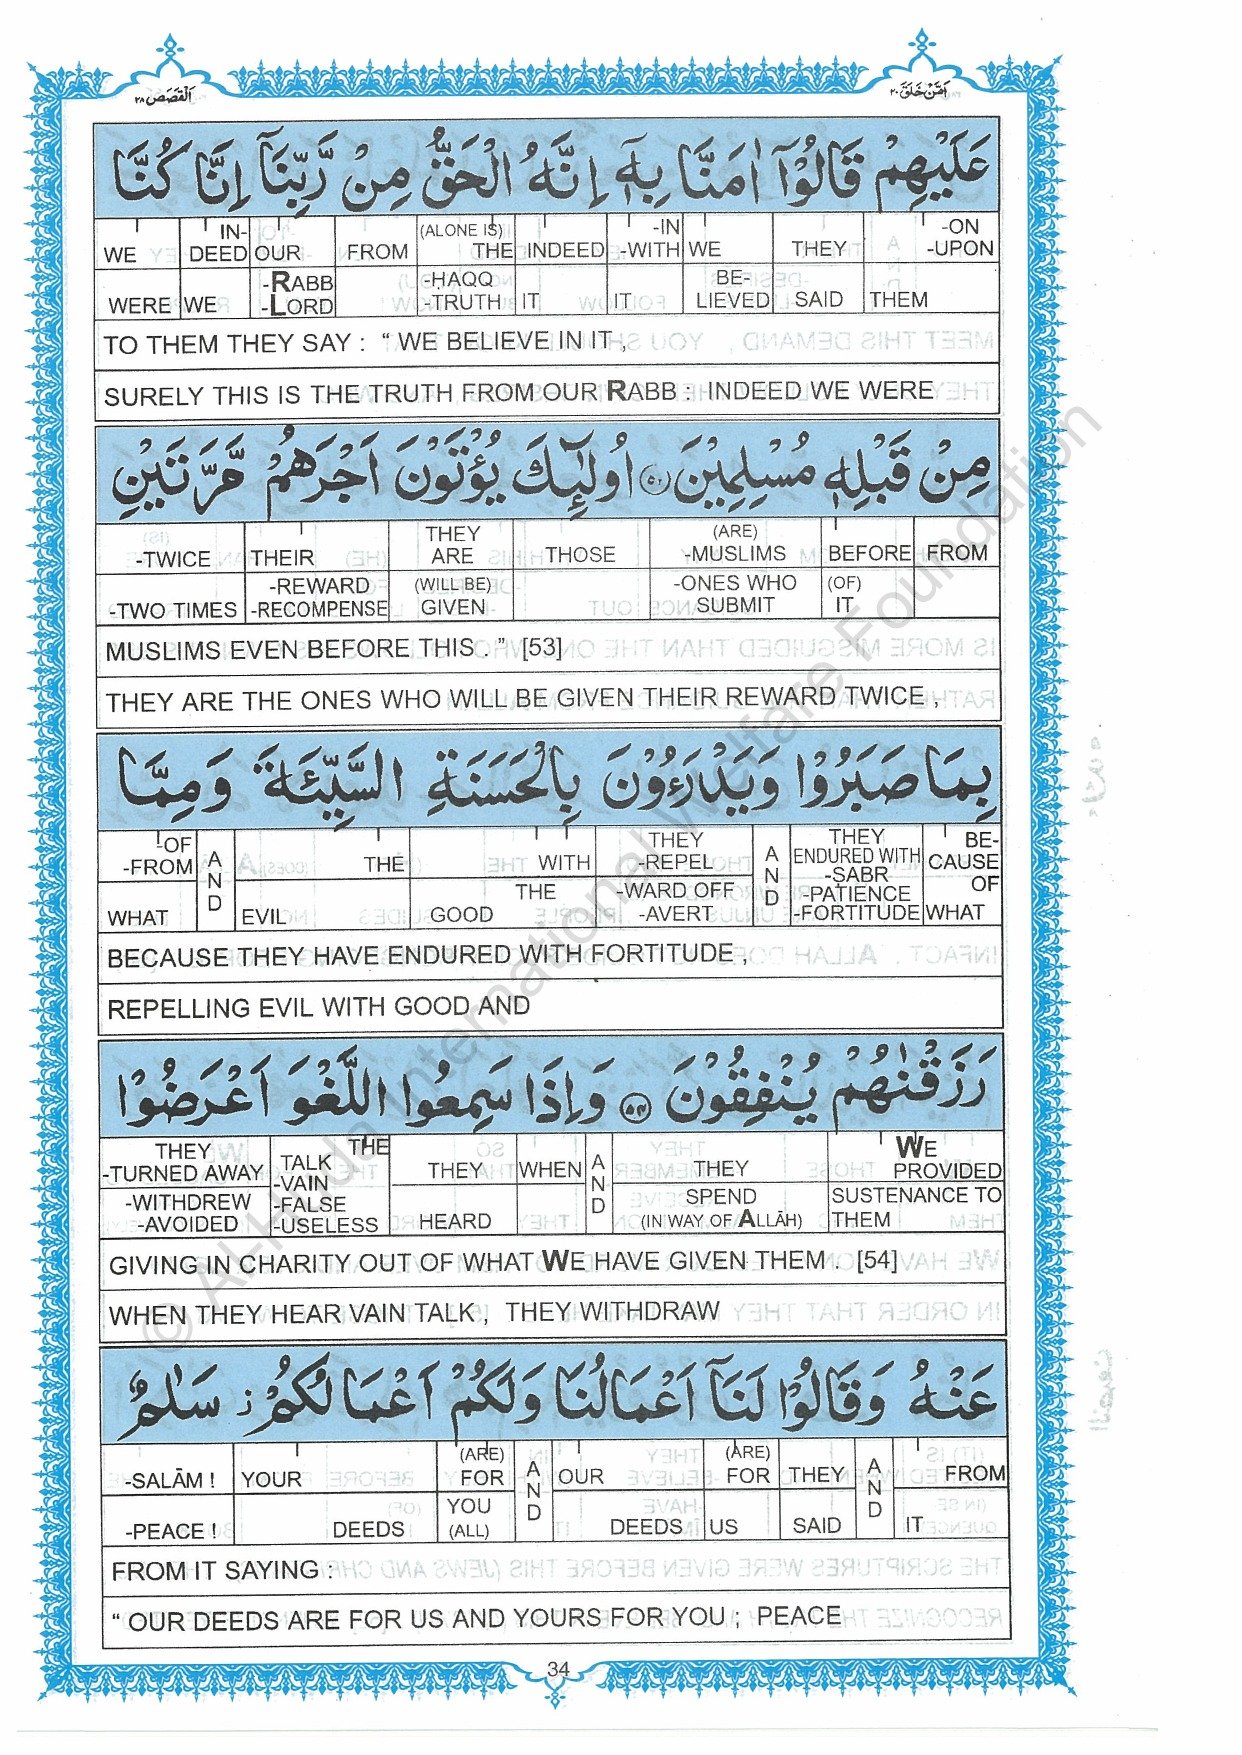 اَلْقَصَص ٢٨
اَمَّنْ خَلَقَ ٢٠
عَلَيْهِمْ قَالُوْٓا اٰمَنَّا بِهٖٓ اِنَّهُ الْحَقُّ مِنْ رَّبِّنَآ اِنَّا كُنَّا
WE IN- OUR FROM (ALONE IS) THE INDEED -IN -WITH WE THEY -ON -UPON
DEED
WERE WE -RABB -LORD -ḤAQQ -TRUTH IT IT BE- LIEVED SAID THEM
TO THEM THEY SAY : “ WE BELIEVE IN IT ,
SURELY THIS IS THE TRUTH FROM OUR RABB : INDEED WE WERE
مِنْ قَبْلِهٖ مُسْلِمِيْنَ ٥٣ اُولٰٓئِكَ يُؤْتَوْنَ اَجْرَهُمْ مَّرَّتَيْنِ
-TWICE THEIR THEY ARE THOSE (ARE) -MUSLIMS BEFORE FROM
-TWO TIMES -REWARD -RECOMPENSE (WILL BE) GIVEN -ONES WHO SUBMIT (OF) IT
MUSLIMS EVEN BEFORE THIS . ” [53]
THEY ARE THE ONES WHO WILL BE GIVEN THEIR REWARD TWICE ,
بِمَا صَبَرُوْا وَيَدْرَءُوْنَ بِالْحَسَنَةِ السَّيِّئَةَ وَمِمَّا
-OF -FROM AND THE WITH THEY -REPEL AND THEY ENDURED WITH BE- CAUSE OF
WHAT EVIL THE GOOD -WARD OFF -AVERT -SABR -PATIENCE -FORTITUDE WHAT
BECAUSE THEY HAVE ENDURED WITH FORTITUDE ,
REPELLING EVIL WITH GOOD AND
رَزَقْنٰهُمْ يُنْفِقُوْنَ ٥٤ وَاِذَا سَمِعُوا اللَّغْوَ اَعْرَضُوْا
THEY -TURNED AWAY THE TALK -VAIN THEY WHEN AND THEY WE PROVIDED
-WITHDREW -AVOIDED -FALSE -USELESS HEARD SPEND (IN WAY OF ALLĀH) SUSTENANCE TO THEM
GIVING IN CHARITY OUT OF WHAT WE HAVE GIVEN THEM . [54]
WHEN THEY HEAR VAIN TALK , THEY WITHDRAW
عَنْهُ وَقَالُوْا لَنَآ اَعْمَالُنَا وَلَكُمْ اَعْمَالُكُمْ ز سَلٰمٌ
-SALĀM ! YOUR (ARE) FOR AND OUR (ARE) FOR THEY AND FROM
-PEACE ! DEEDS YOU (ALL) DEEDS US SAID IT
FROM IT SAYING :
“ OUR DEEDS ARE FOR US AND YOURS FOR YOU ; PEACE
34
© Al-Huda International Welfare Foundation